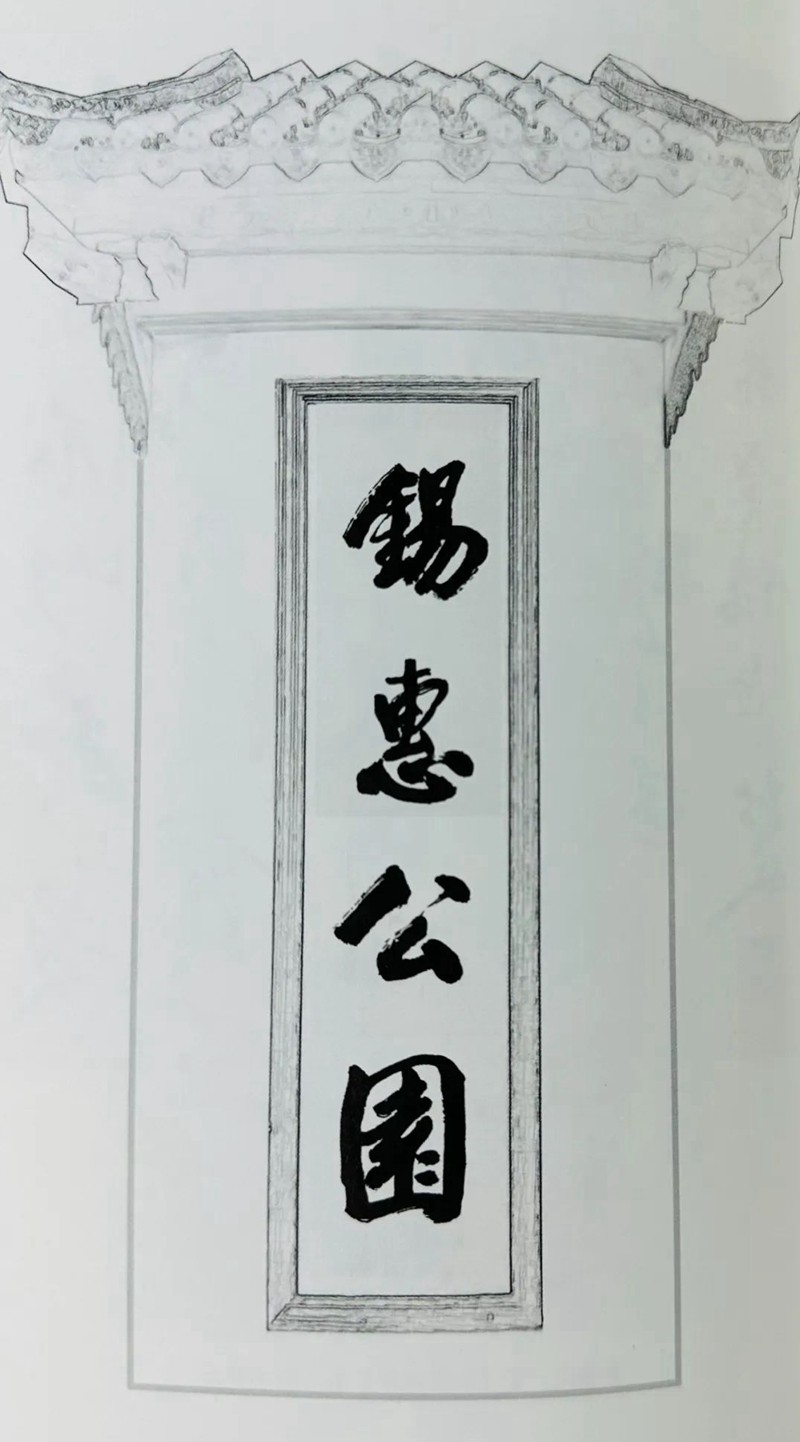 錫惠公園